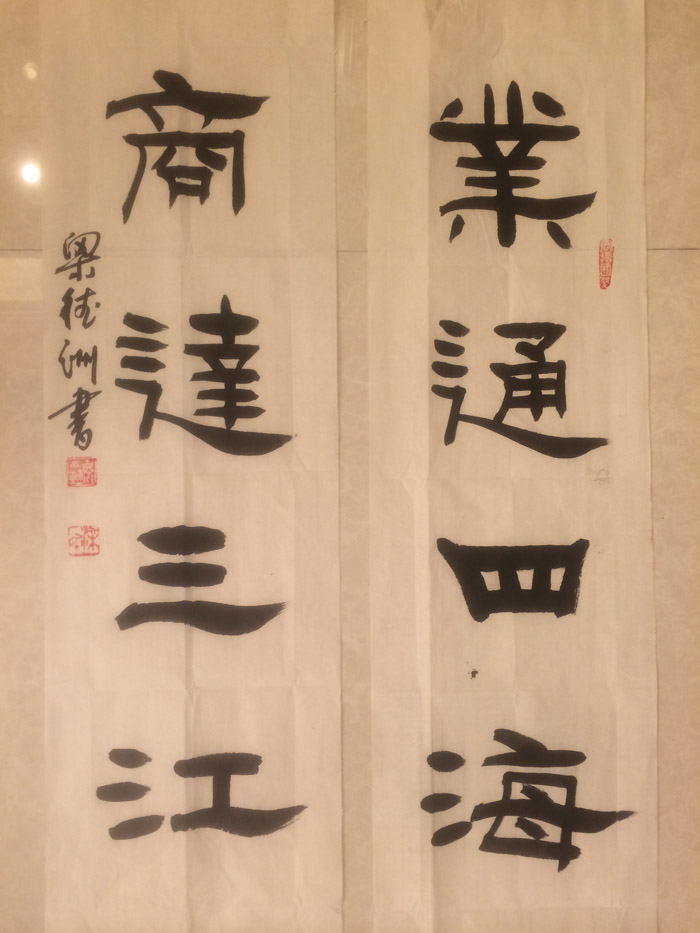 業通四海
商達三江
梁德洲書